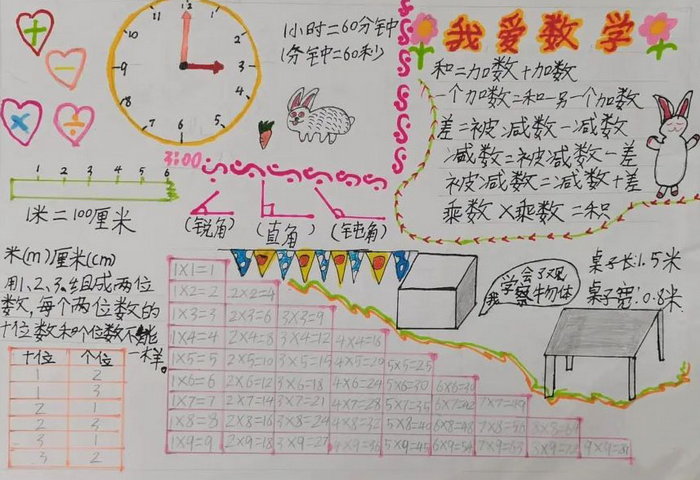 +
−
×
÷
12
1
2
3
4
5
6
7
8
9
10
11
3:00
1小时=60分钟
1分钟=60秒
我爱数学
和=加数+加数
一个加数=和-另一个加数
差=被减数-减数
减数=被减数-差
被减数=减数+差
乘数×乘数=积
1 2 3 4 5 6
1米=100厘米
(锐角) (直角) (钝角)
米(m)厘米(cm)
用1、2、3组成两位
数,每个两位数的
十位数和个位数不能
一样。
十位 个位
1 2
1 3
2 1
2 3
3 1
3 2
1×1=1
1×2=2 2×2=4
1×3=3 2×3=6 3×3=9
1×4=4 2×4=8 3×4=12 4×4=16
1×5=5 2×5=10 3×5=15 4×5=20 5×5=25
1×6=6 2×6=12 3×6=18 4×6=24 5×6=30 6×6=36
1×7=7 2×7=14 3×7=21 4×7=28 5×7=35 6×7=42 7×7=49
1×8=8 2×8=16 3×8=24 4×8=32 5×8=40 6×8=48 7×8=56 8×8=64
1×9=9 2×9=18 3×9=27 4×9=36 5×9=45 6×9=54 7×9=63 8×9=72 9×9=81
我学会了观
察物体
桌子长:1.5米
桌子宽:0.8米